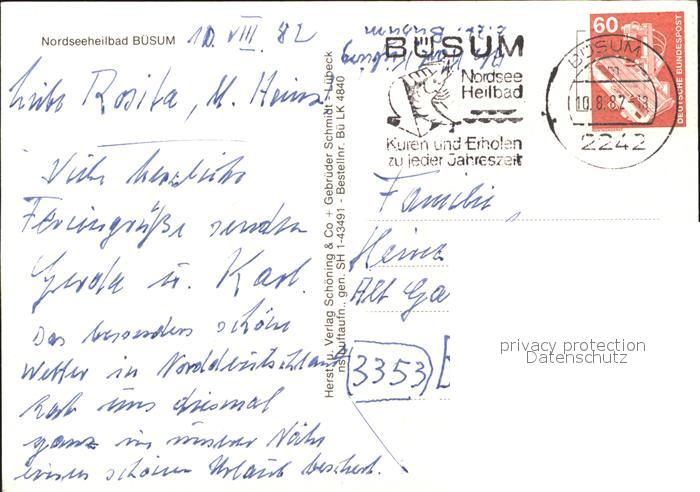 Nordseeheilbad BÜSUM
10. VIII. 82
Liebe Rosita, u. Heinz
Viele herzliche
Feriengrüße senden
Gerda u. Karl.
Das besonders schöne
Wetter in Norddeutschland
hat uns diesmal
ganz in unserer Nähe
einen schönen Urlaub beschert.
Herst. u. Verlag Schöning & Co + Gebrüder Schmidt - Lübeck
Luftaufn., gen. SH 1-43491 - Bestellnr. Bü LK 4840
z.Zt. Büsum
BÜSUM
Nordsee
Heilbad
Kuren und Erholen
zu jeder Jahreszeit
BÜSUM
10.8.82-18
2242
60
DEUTSCHE BUNDESPOST
Familie
Heinz
Alt Ga
(3353)
privacy protection
Datenschutz